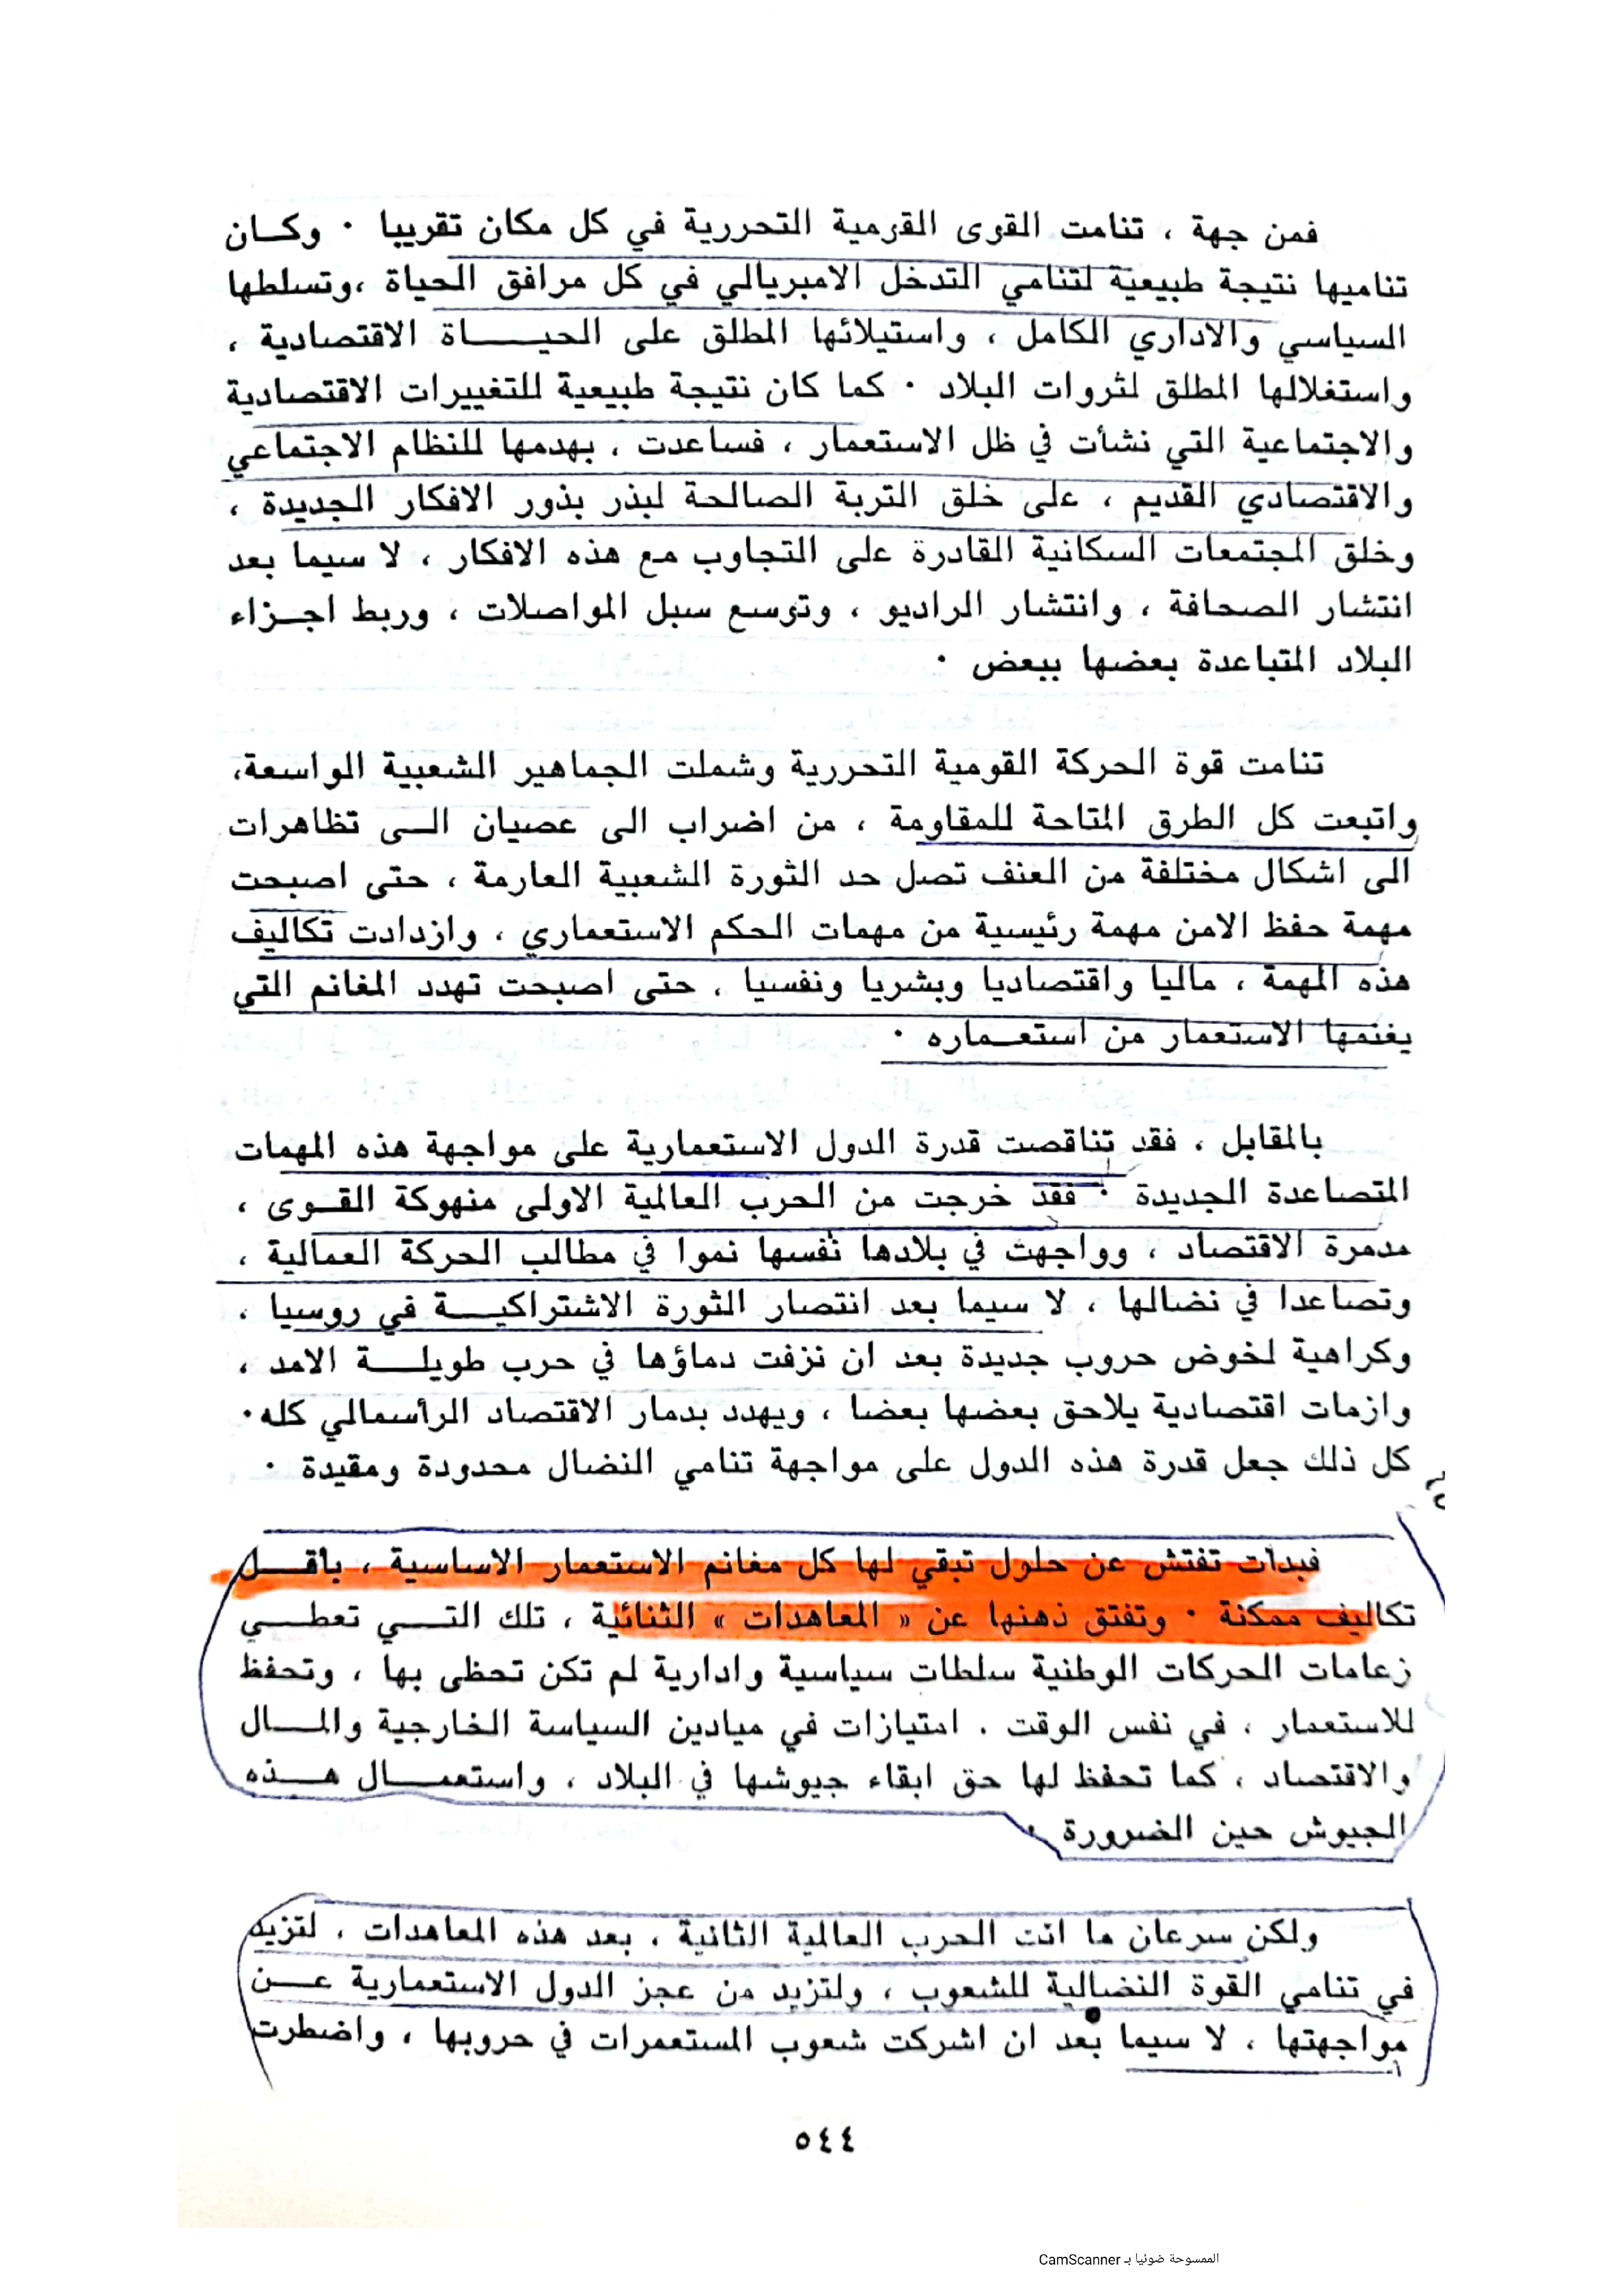 فمن جهة ، تنامت القوى القومية التحررية في كل مكان تقريبا . وكــان
تناميها نتيجة طبيعية لتنامي التدخل الامبريالي في كل مرافق الحياة ،وتسلطها
السياسي والاداري الكامل ، واستيلائها المطلق على الحيــــاة الاقتصادية ،
واستغلالها المطلق لثروات البلاد . كما كان نتيجة طبيعية للتغييرات الاقتصادية
والاجتماعية التي نشأت في ظل الاستعمار ، فساعدت ، بهدمها للنظام الاجتماعي
والاقتصادي القديم ، على خلق التربة الصالحة لبذر بذور الافكار الجديدة ،
وخلق المجتمعات السكانية القادرة على التجاوب مع هذه الافكار ، لا سيما بعد
انتشار الصحافة ، وانتشار الراديو ، وتوسع سبل المواصلات ، وربط اجــزاء
البلاد المتباعدة بعضها ببعض .
تنامت قوة الحركة القومية التحررية وشملت الجماهير الشعبية الواسعة،
واتبعت كل الطرق المتاحة للمقاومة ، من اضراب الى عصيان الــى تظاهرات
الى اشكال مختلفة من العنف تصل حد الثورة الشعبية العارمة ، حتى اصبحت
مهمة حفظ الامن مهمة رئيسية من مهمات الحكم الاستعماري ، وازدادت تكاليف
هذه المهمة ، ماليا واقتصاديا وبشريا ونفسيا ، حتى اصبحت تهدد المغانم التي
يغنمها الاستعمار من استعــماره .
بالمقابل ، فقد تناقصت قدرة الدول الاستعمارية على مواجهة هذه المهمات
المتصاعدة الجديدة . فقد خرجت من الحرب العالمية الاولى منهوكة القــوى ،
مدمرة الاقتصاد ، وواجهت في بلادها نفسها نموا في مطالب الحركة العمالية ،
وتصاعدا في نضالها ، لا سيما بعد انتصار الثورة الاشتراكيــــة في روسيا ،
وكراهية لخوض حروب جديدة بعد ان نزفت دماؤها في حرب طويلــــة الامد ،
وازمات اقتصادية يلاحق بعضها بعضا ، ويهدد بدمار الاقتصاد الرأسمالي كله.
كل ذلك جعل قدرة هذه الدول على مواجهة تنامي النضال محدودة ومقيدة .
فبدأت تفتش عن حلول تبقي لها كل مغانم الاستعمار الاساسية ، باقــــل
تكاليف ممكنة . وتفتق ذهنها عن « المعاهدات » الثنائية ، تلك التــــي تعطــــي
زعامات الحركات الوطنية سلطات سياسية وادارية لم تكن تحظى بها ، وتحفظ
للاستعمار ، في نفس الوقت ، امتيازات في ميادين السياسة الخارجية والمــــال
والاقتصاد ، كما تحفظ لها حق ابقاء جيوشها في البلاد ، واستعمــــال هــــذه
الجيوش حين الضرورة .
ولكن سرعان ما اتت الحرب العالمية الثانية ، بعد هذه المعاهدات ، لتزيد
في تنامي القوة النضالية للشعوب ، ولتزيد من عجز الدول الاستعمارية عــــن
مواجهتها ، لا سيما بعد ان اشركت شعوب المستعمرات في حروبها ، واضطرت
٥٤٤
الممسوحة ضوئيا بـ CamScanner